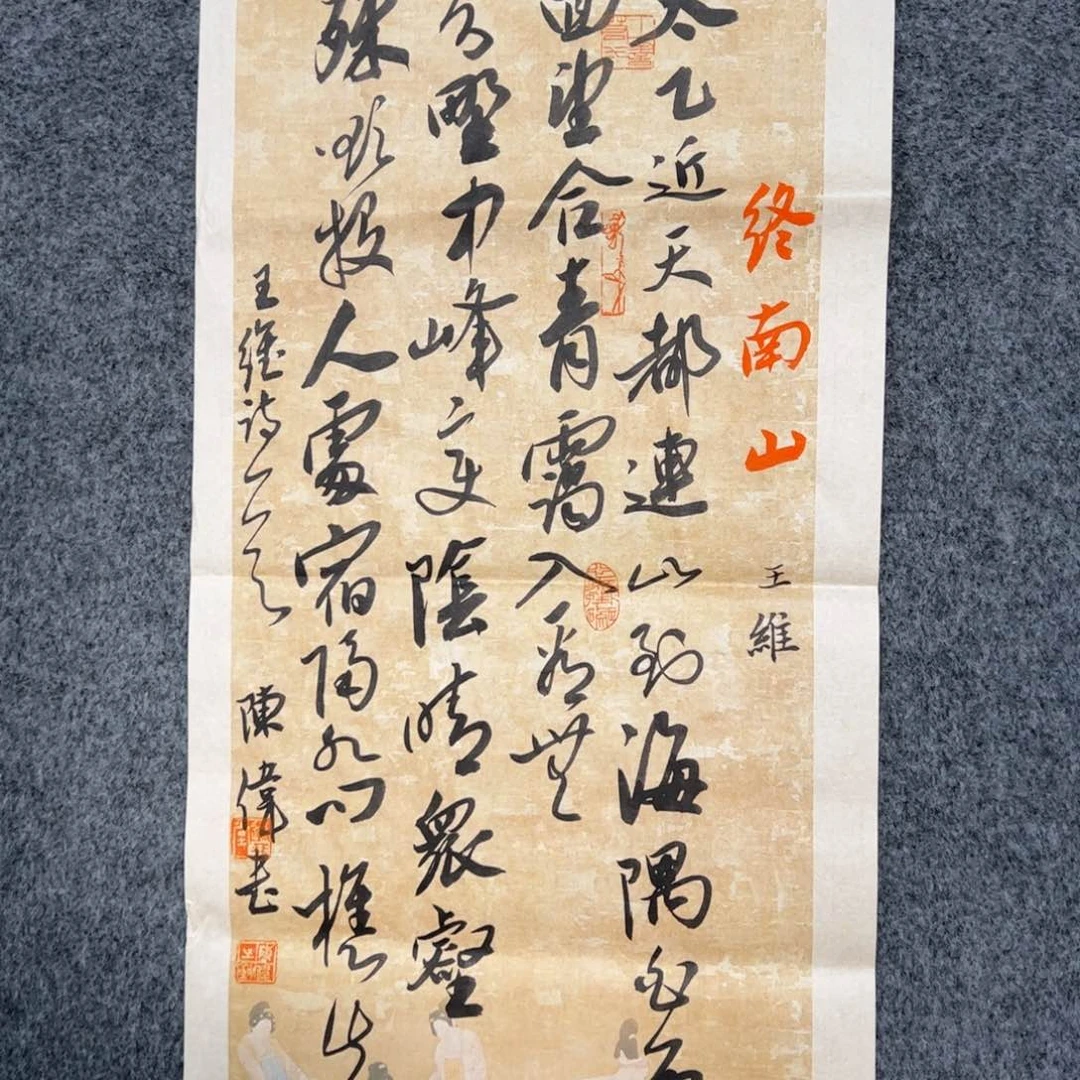 終南山
王維
太乙近天都連山到海隅白雲
回望合青靄入看無
分野中峰變陰晴衆壑
殊欲投人處宿隔水問樵
王維詩一首
陳偉書